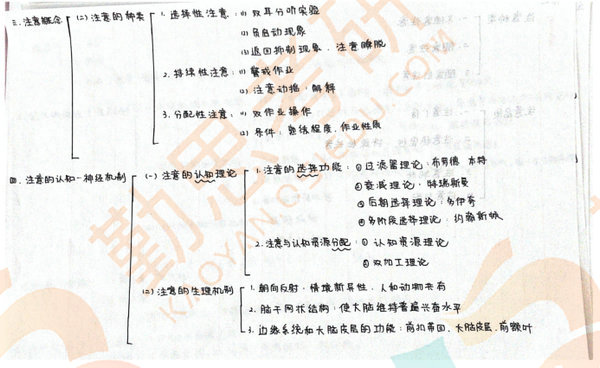 三.注意概念 (二)注意的种类 1.选择性注意:(1)双耳分听实验
(2)负启动现象
(3)返回抑制现象、注意瞬脱
2.持续性注意:(1)警戒作业
(2)注意动摇:解释
3.分配性注意:(1)双作业操作
(2)条件:熟练程度、作业性质
四.注意的认知-神经机制 (一)注意的认知理论 1.注意的选择功能:①过滤器理论:布罗德 本特
②衰减理论:特瑞斯曼
③后期选择理论:多伊奇
④多阶段选择理论:约翰斯顿
2.注意与认知资源分配:①认知资源理论
②双加工理论
(二)注意的生理机制 1.朝向反射:情境新异性、人和动物共有
2.脑干网状结构:使大脑维持普遍兴奋水平
3.边缘系统和大脑皮层的功能:前扣带回、大脑皮层、前额叶
勤思考研
KAOYANQINSI.COM